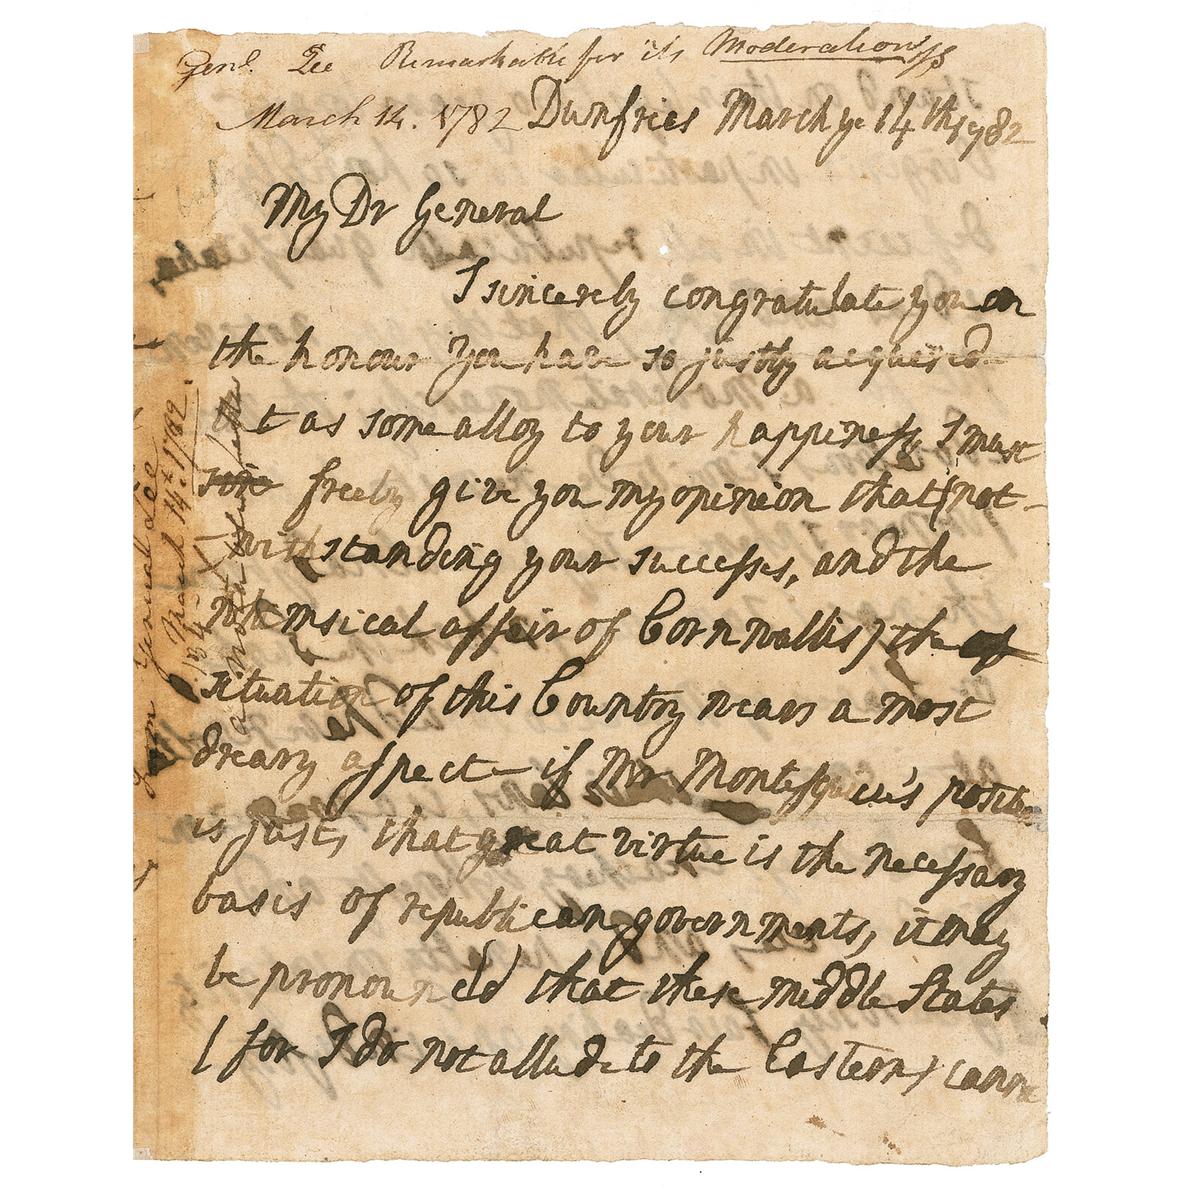 Genl. Lee Remarkable for its Moderation
March 14. 1782 Dumfries March ye 14th 1782
My Dr General
I sincerely congratulate you on
the honour you have so justly acquered
but as some alloy to your happiness I must
freely give you my opinion that (not-
-withstanding your successes, and the
whimsical affair of Cornwallis) the
situation of this Country wears a most
dreary aspect - if Mr Montesquieu's position
is just, that great virtue is the necessary
basis of republican governments, it may
be pronouncd that these middle States
( for I do not allude to the Eastern ) canno
From General Lee
March 14th. 1782.